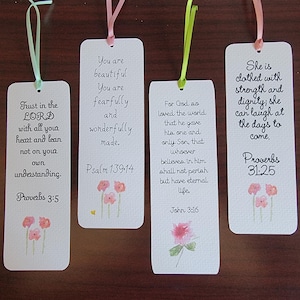 Trust in the
LORD
with all your
heart and lean
not on your
own
understanding.
Proverbs 3:5
You are
beautiful
You are
fearfully
and
wonderfully
made.
Psalm 139:14
For God so
loved the world
that he gave
his one and
only Son, that
whoever
believes in him
shall not perish
but have eternal
life.
John 3:16
She is
clothed with
strength and
dignity; she
can laugh at
the days to
come.
Proverbs
31:25